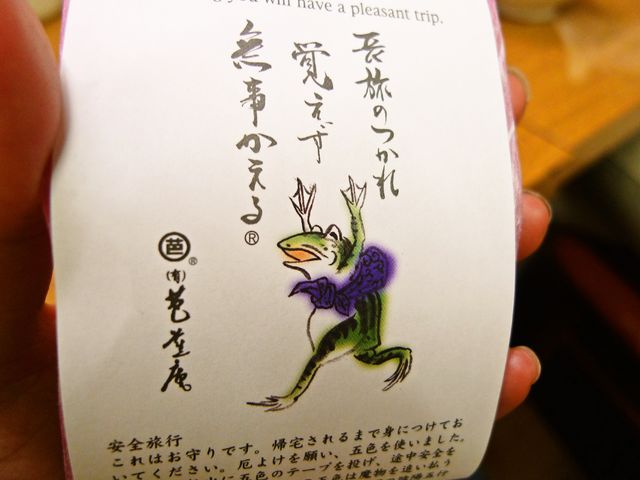 you will have a pleasant trip.
長旅のつかれ
覚えず
無事かえる®
芭®
(有)芭蕉庵
安全旅行
これはお守りです。帰宅されるまで身につけてお
いてください。厄よけを願い、五色を使いました。
に五色のテープを投げ、途中安全を
五色は魔物を追い払う